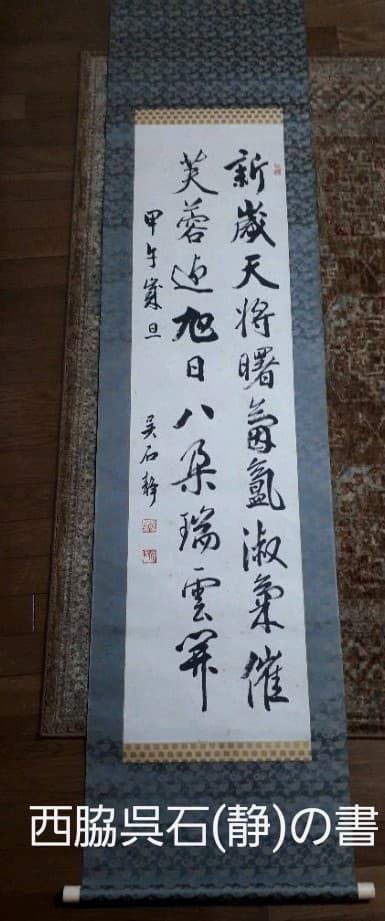 新歲天將曙氤氳淑氣催
芙蓉迎旭日八朶瑞雲開
甲午歲旦
吳石靜
西脇呉石(静)の書